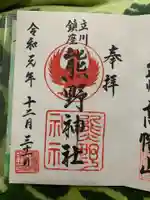 高幡山
奉拝
立川
鎮座
熊野神社
熊野
神社
令和元年 十二月三